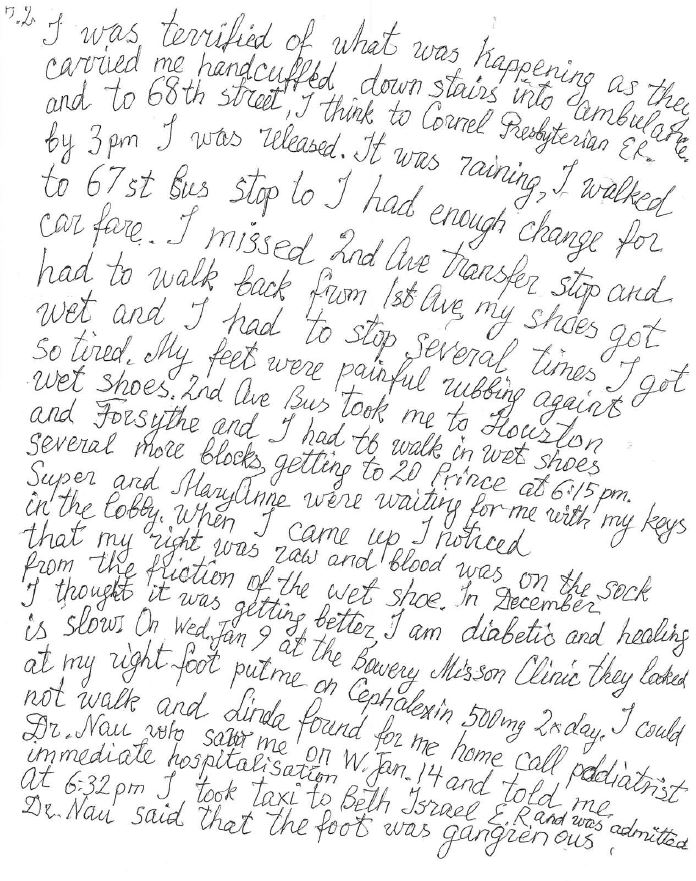 p.2
I was terrified of what was happening as they
carried me handcuffed down stairs into ambulance
and to 68th street, I think to Cornel Presbyterian ER.
by 3pm I was released. It was raining, I walked
to 67st Bus stop to I had enough change for
car fare. I missed 2nd Ave transfer stop and
had to walk back from 1st Ave, my shoes got
wet and I had to stop several times I got
so tired. My feet were painful rubbing againt
wet shoes. 2nd Ave Bus took me to Houston
and Forsythe and I had to walk in wet shoes
several more blocks, getting to 20 Prince at 6:15 pm.
Super and MaryAnne were waiting for me with my keys
in the lobby. When I came up I noticed
that my right was raw and blood was on the sock
from the friction of the wet shoe. In December
I thought it was getting better, I am diabetic and healing
is slow. On Wed, Jan 9 at the Bowery Misson Clinic they looked
at my right foot put me on Cephalexin 500mg 2x day. I could
not walk and Linda found for me home call podiatrist
Dr. Nau who saw me on W. Jan. 14 and told me
immediate hospitalisation
At 6:32 pm I took taxi to Beth Israel E.R and was admitted
Dr. Nau said that the foot was gangrenous.